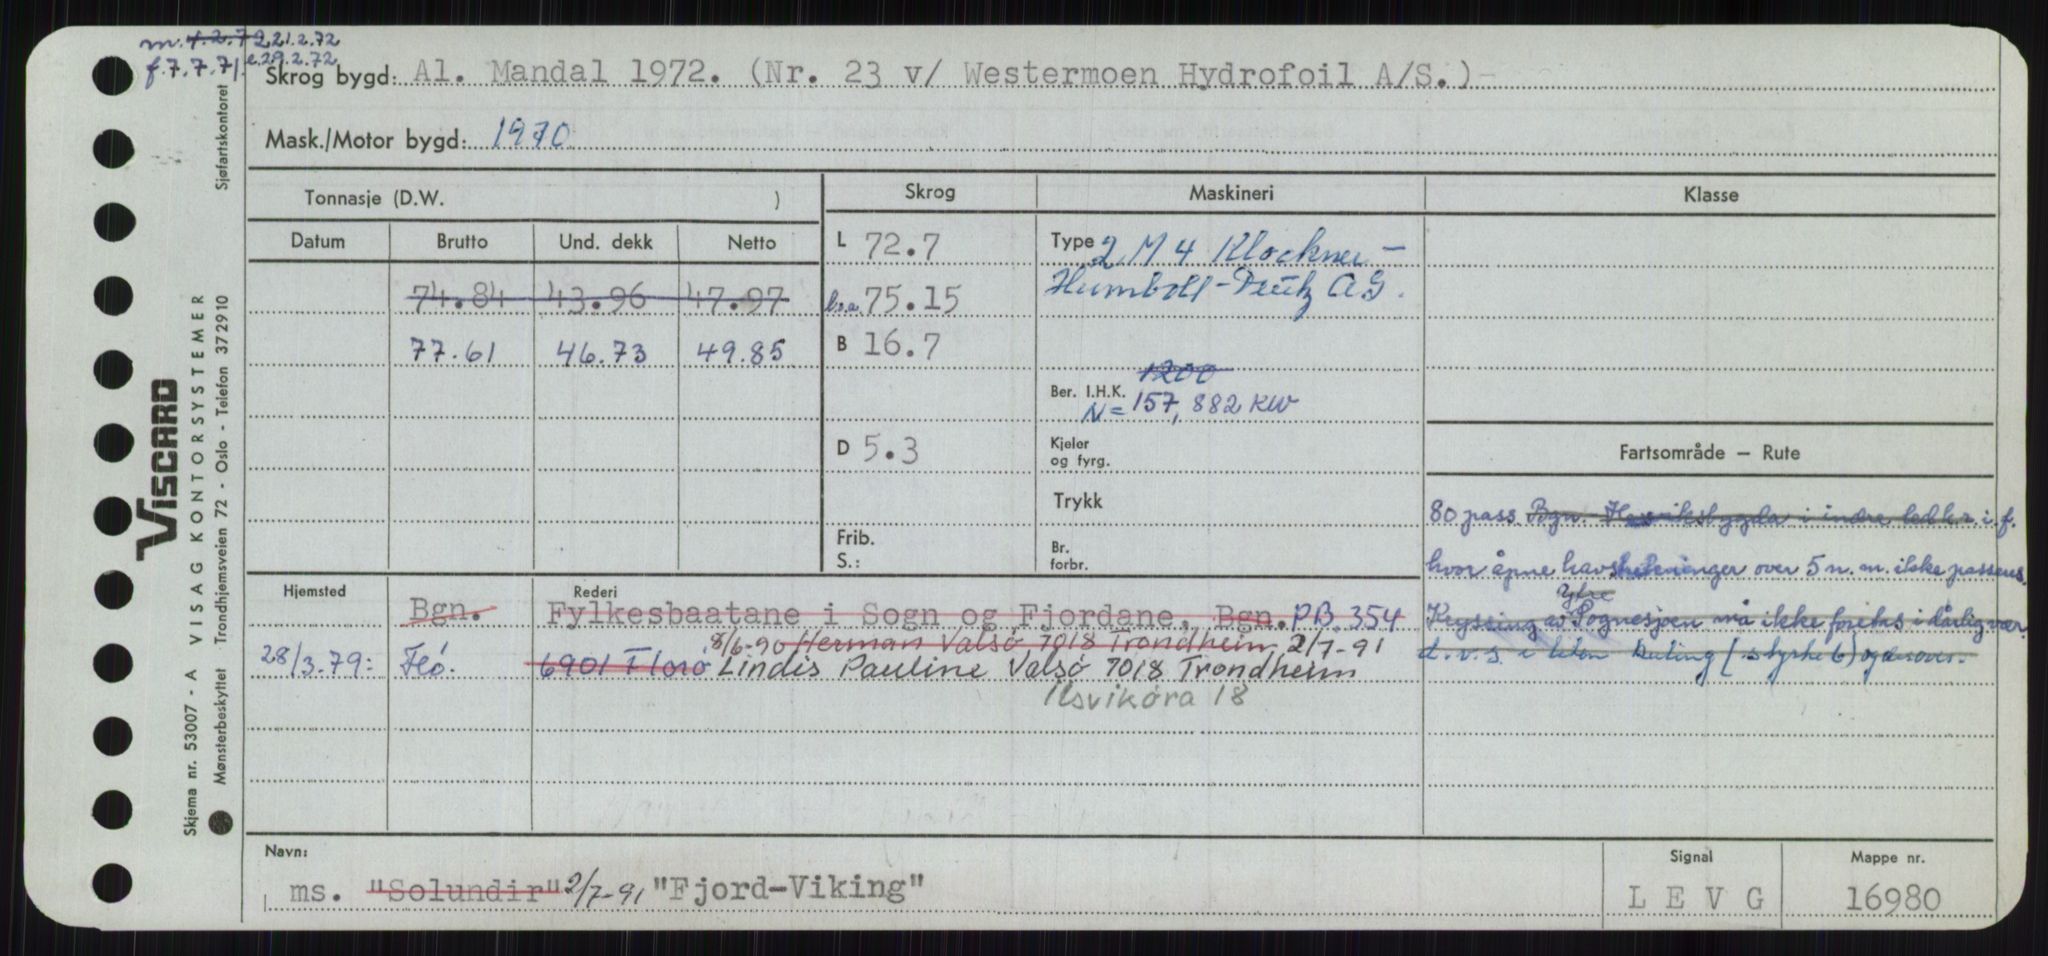 m. 4.2.72 21.2.72
f. 7.7.71. e.29.2.72
Skrog bygd: Al. Mandal 1972. (Nr. 23 v/ Westermoen Hydrofoil A/S.)
Mask./Motor bygd: 1970
Tonnasje (D.W. )
Skrog
Maskineri
Klasse
Datum Brutto Und. dekk Netto
L 72.7
Type 2 M 4 Klockner-
Humboll-Deutz AG.
74.84 43.96 47.97
l.o.a. 75.15
77.61 46.73 49.85
B 16.7
1200
Ber. I.H.K.
N = 157, 882 KW
D 5.3
Kjeler
og fyrg.
Trykk
Frib.
S.:
Br.
forbr.
Fartsområde – Rute
80 pass. Bgn. i indre i.f.
hvor åpne havstrekninger over 5 n.m. ikke passeres.
Ytre
Kryssing av Sognesjøen må ikke foretas i dårlig vær
d.v.s. i liten kuling (styrke 6) og derover.
Hjemsted
Rederi
Bgn. Fylkesbaatane i Sogn og Fjordane, Bgn. PB 354
8/6-90 Herman Valsø 7018 Trondheim 2/7-91
28/3.79: Flø. 6901 Florø Lindis Pauline Valsø 7018 Trondheim
Ilsvikøra 18
Navn:
Signal
Mappe nr.
ms. "Solundir" 2/7-91 "Fjord-Viking"
L E V G
16980
Sjøfartskontoret
VISCARD
Skjema nr. 53007 - A VISAG KONTORSYSTEMER
Mønsterbeskyttet Trondhjemsveien 72 - Oslo - Telefon 372910